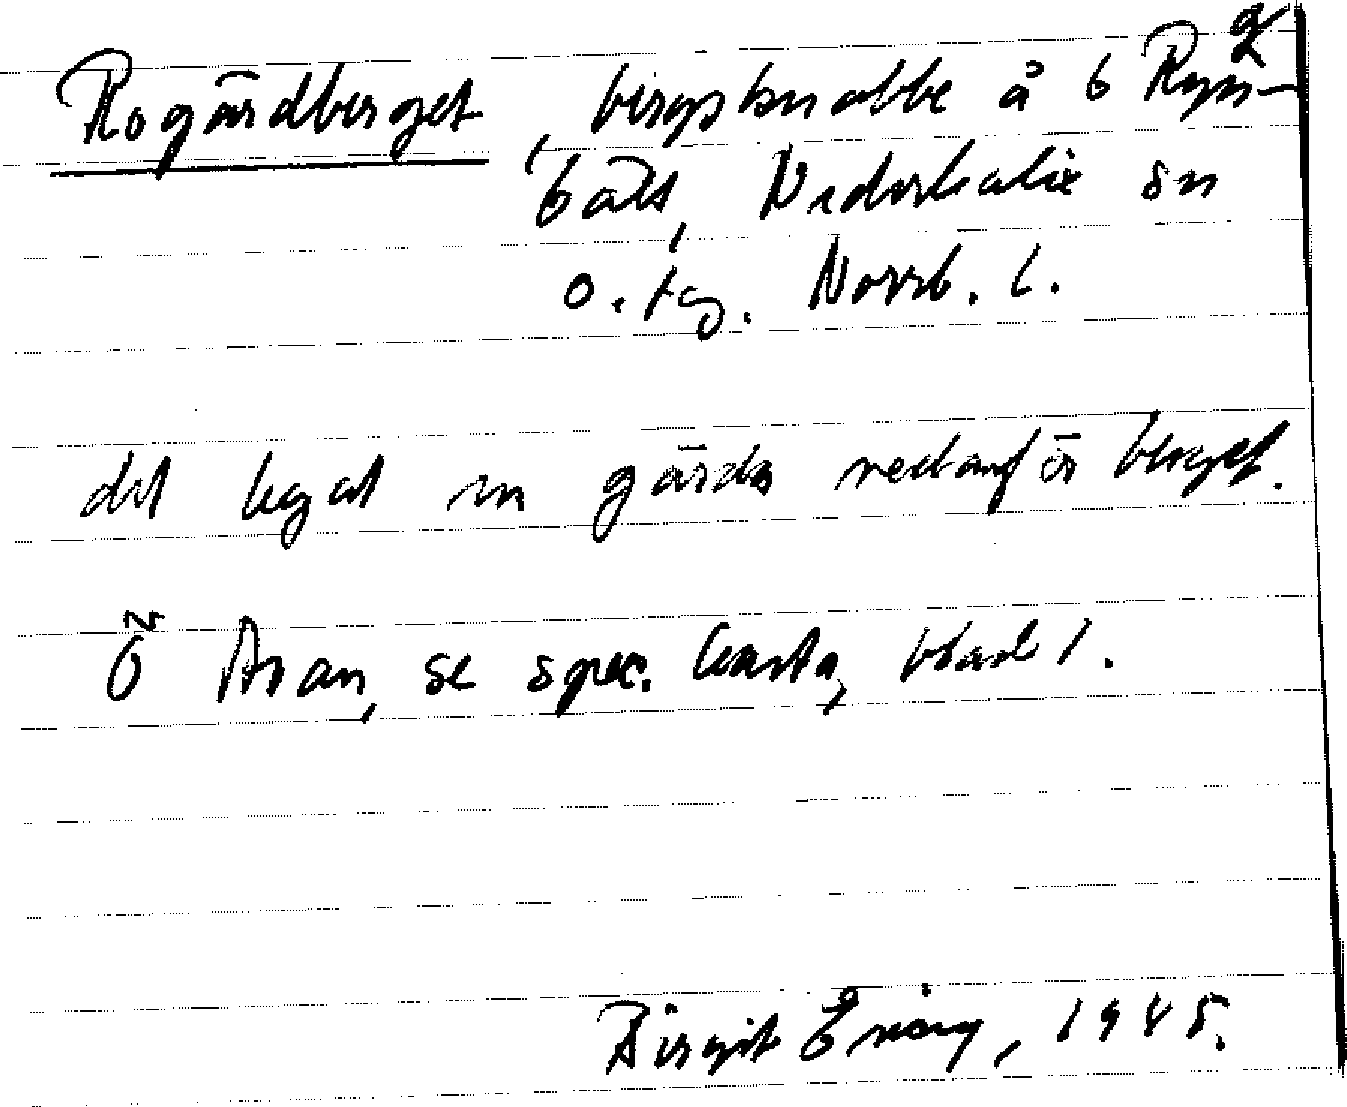 Rogärdberget, bergsknabbe å 6 Ryss-
bält, Nederkalix sn
o. tg. Norrb. l.
det legat en gärda nedanför berget.
Ö Axan, se spec. karta, blad 1.
Birgit Ering, 1945.